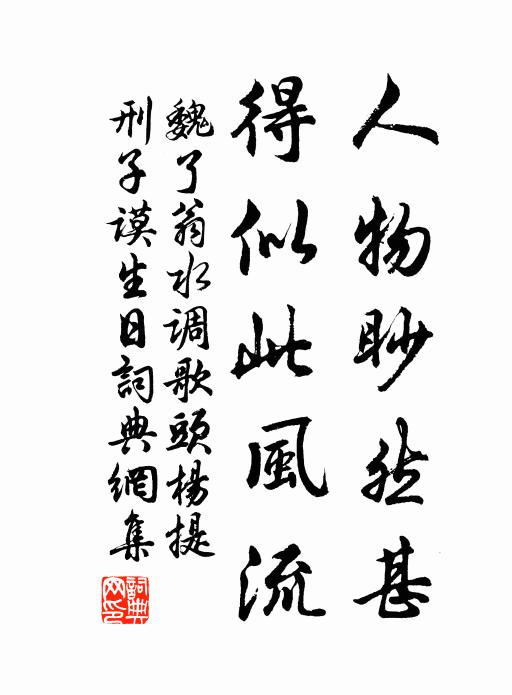 人物眇然甚
得似此風流
魏了翁水调歌頭楊提
刑子谟生日詞典網集
詞典网印